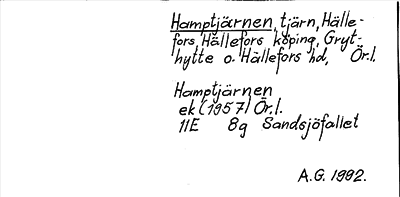 Hamptjärnen, tjärn, Hälle-
fors, Hällefors köping, Gryt-
hytte o. Hällefors hd, Ör.l.
Hamptjärnen
ek (1957) Ör.l.
11E 8g Sandsjöfallet
A.G. 1992.